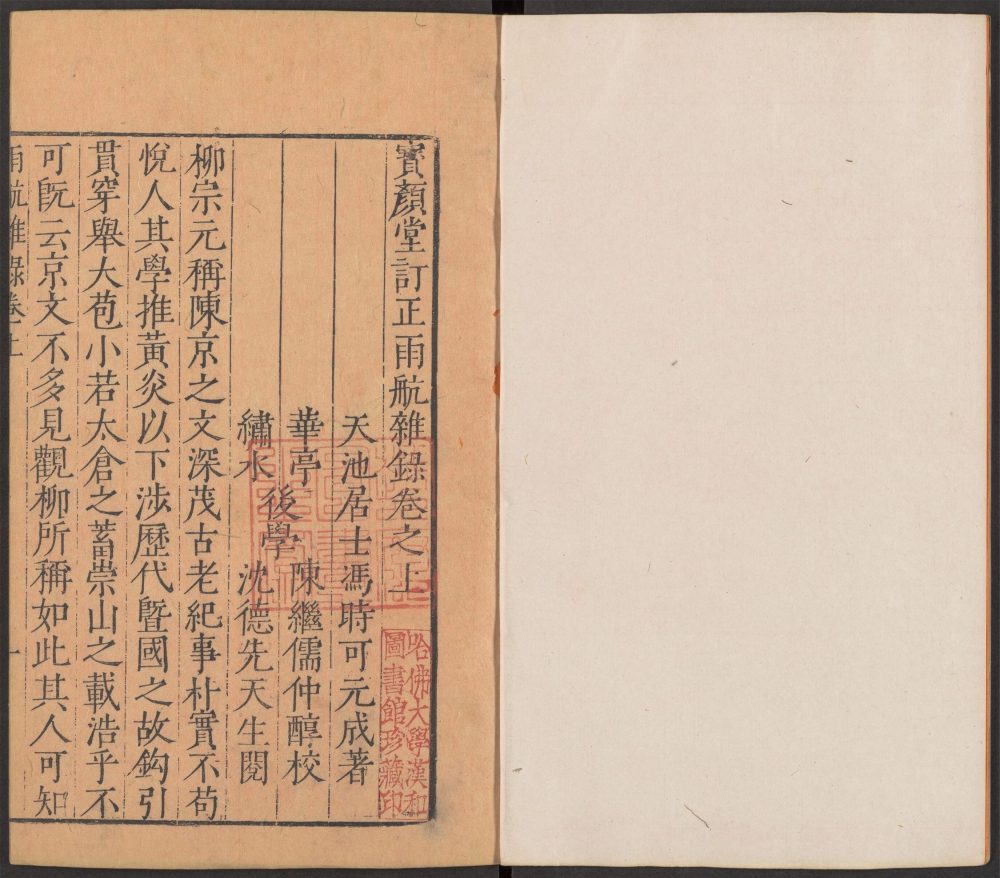 寶顏堂訂正雨航雜錄卷之上
天池居士馮時可元成著
華亭 陳繼儒仲醇校
後學
繡水 沈德先天生閱
柳宗元稱陳京之文深茂古老紀事朴實不苟
悅人其學推黃炎以下涉歷代曁國之故鈎引
貫穿舉大苞小若太倉之蓄崇山之載浩乎不
可旣云京文不多見觀柳所稱如此其人可知
雨航雜錄卷上 一
哈佛大學漢和
圖書館珍藏印